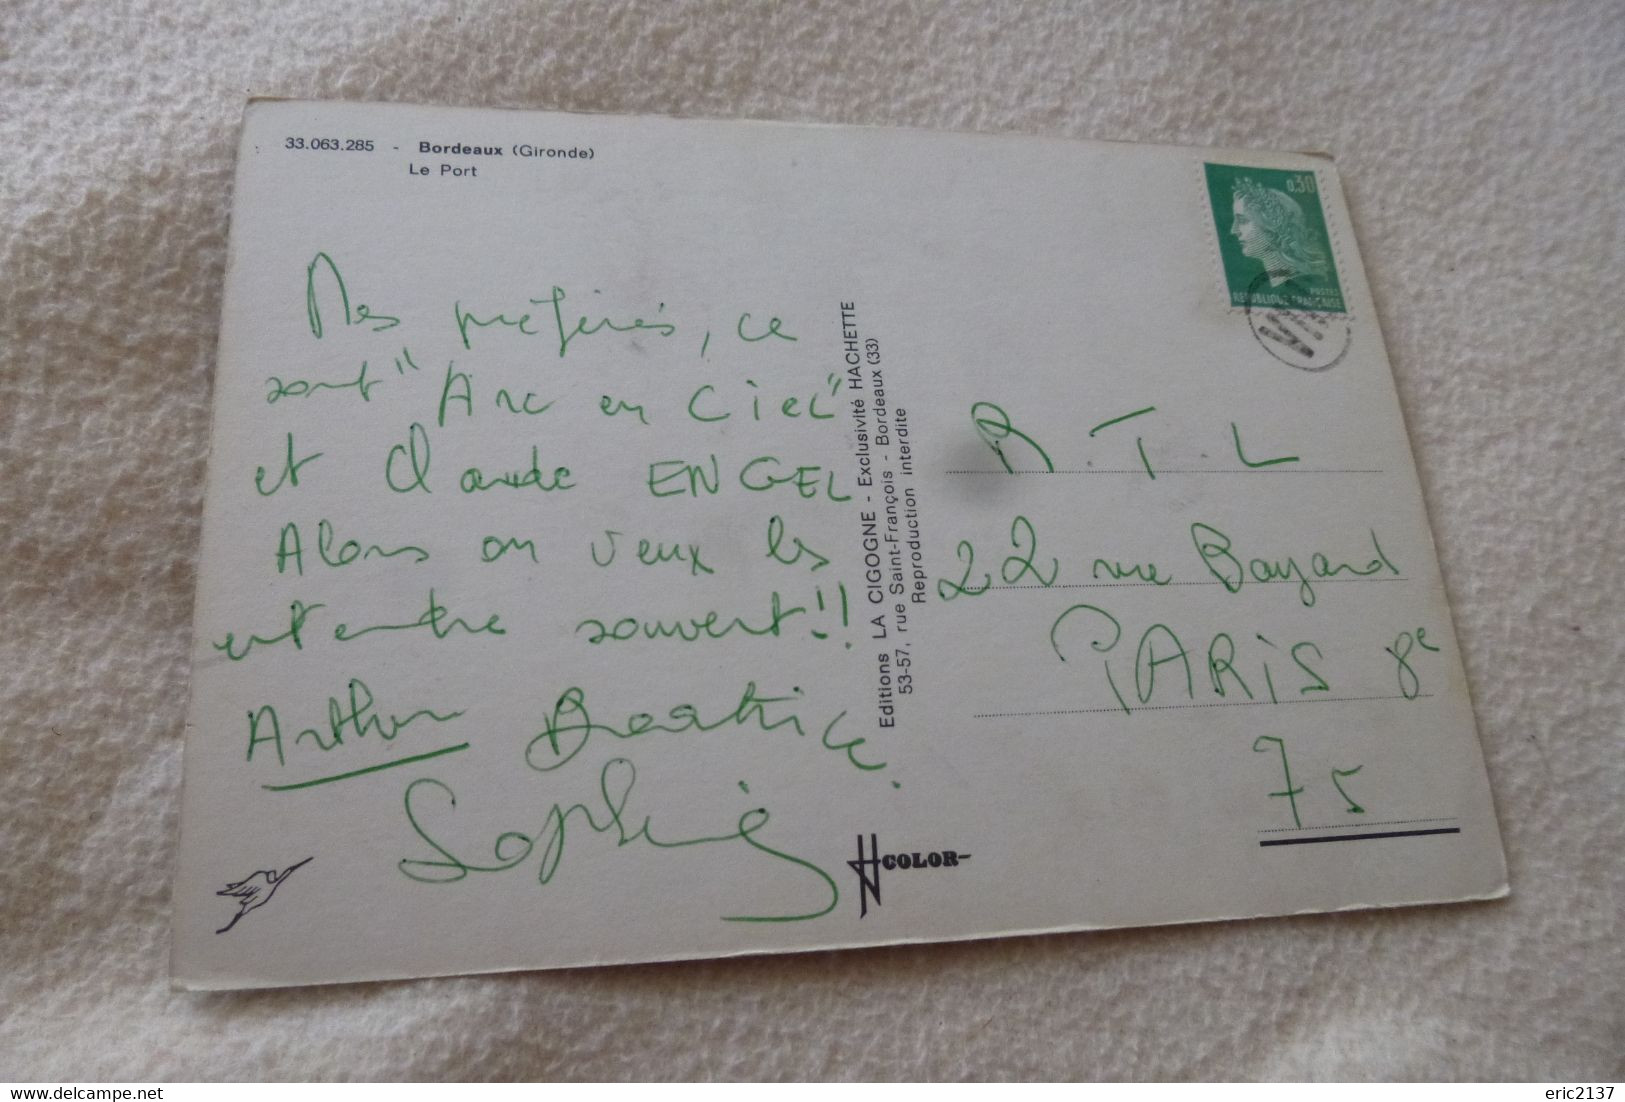 33.063.285 - Bordeaux (Gironde)
Le Port
Mes préférés, ce
sont "Arc en Ciel"
et Claude ENGEL
Alors on veux les
entendre souvent!!
Arthur Beatrice.
Sophie
Editions LA CIGOGNE - Exclusivité HACHETTE
53-57, rue Saint-François - Bordeaux (33)
Reproduction interdite
COLOR
0,30
POSTES
REPUBLIQUE FRANÇAISE
R.T.L
22 rue Bayard
PARIS 8e
75
delcampe.net
eric2137